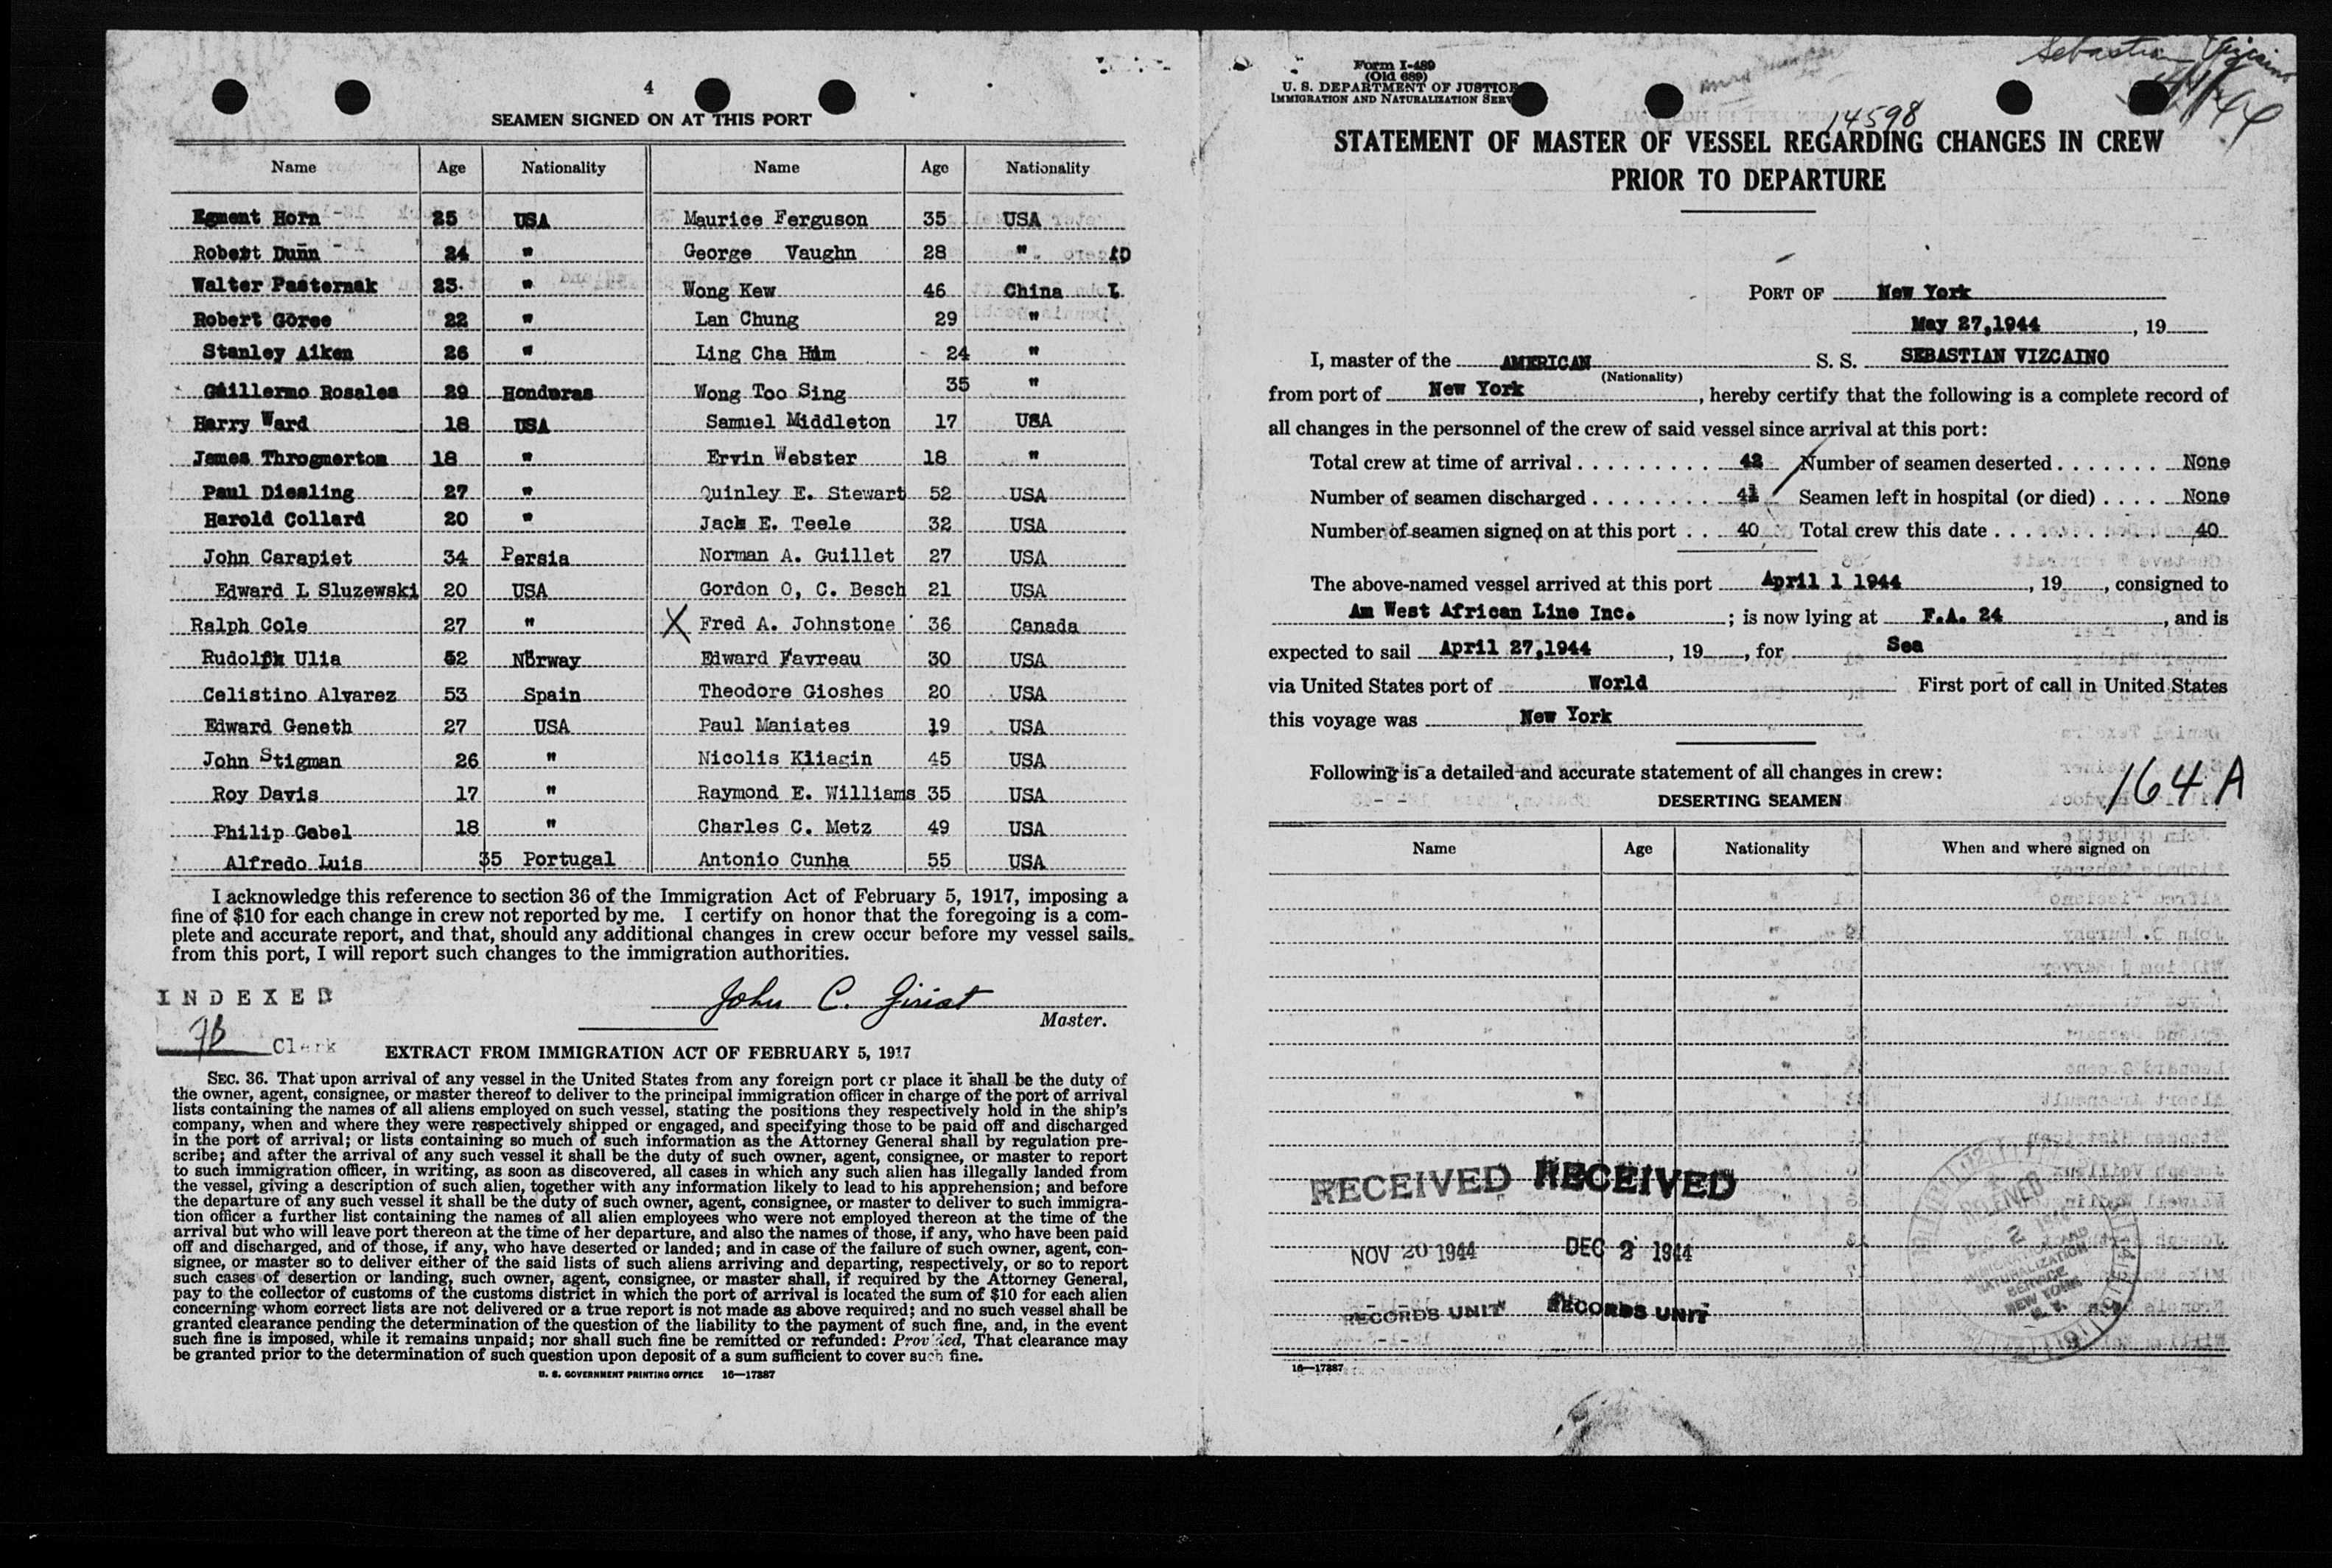 4
SEAMEN SIGNED ON AT THIS PORT
Name Age Nationality Name Age Nationality
Egment Horn 25 USA Maurice Ferguson 35 USA
Robert Dunn 24 " George Vaughn 28 "
Walter Pasternak 23 " Wong Kew 46 China
Robert Goree 22 " Lan Chung 29 "
Stanley Aiken 26 " Ling Cha Him 24 "
Guillermo Rosales 29 Honduras Wong Too Sing 35 "
Harry Ward 18 USA Samuel Middleton 17 USA
James Throgmerton 18 " Ervin Webster 18 "
Paul Diesling 27 " Quinley E. Stewart 52 USA
Harold Collard 20 " Jack E. Teele 32 USA
John Carapiet 34 Persia Norman A. Guillet 27 USA
Edward L Sluzewski 20 USA Gordon O, C. Besch 21 USA
Ralph Cole 27 " X Fred A. Johnstone 36 Canada
Rudolph Ulia 52 Norway Edward Favreau 30 USA
Celistino Alvarez 53 Spain Theodore Gioshes 20 USA
Edward Geneth 27 USA Paul Maniates 19 USA
John Stigman 26 " Nicolis Kliagin 45 USA
Roy Davis 17 " Raymond E. Williams 35 USA
Philip Gabel 18 " Charles C. Metz 49 USA
Alfredo Luis 35 Portugal Antonio Cunha 55 USA
I acknowledge this reference to section 36 of the Immigration Act of February 5, 1917, imposing a
fine of $10 for each change in crew not reported by me. I certify on honor that the foregoing is a com-
plete and accurate report, and that, should any additional changes in crew occur before my vessel sails
from this port, I will report such changes to the immigration authorities.
INDEXED
John C.
Master.
Clerk
EXTRACT FROM IMMIGRATION ACT OF FEBRUARY 5, 1917
SEC. 36. That upon arrival of any vessel in the United States from any foreign port or place it shall be the duty of
the owner, agent, consignee, or master thereof to deliver to the principal immigration officer in charge of the port of arrival
lists containing the names of all aliens employed on such vessel, stating the positions they respectively hold in the ship's
company, when and where they were respectively shipped or engaged, and specifying those to be paid off and discharged
in the port of arrival; or lists containing so much of such information as the Attorney General shall by regulation pre-
scribe; and after the arrival of any such vessel it shall be the duty of such owner, agent, consignee, or master to report
to such immigration officer, in writing, as soon as discovered, all cases in which any such alien has illegally landed from
the vessel, giving a description of such alien, together with any information likely to lead to his apprehension; and before
the departure of any such vessel it shall be the duty of such owner, agent, consignee, or master to deliver to such immigra-
tion officer a further list containing the names of all alien employees who were not employed thereon at the time of the
arrival but who will leave port thereon at the time of her departure, and also the names of those, if any, who have been paid
off and discharged, and of those, if any, who have deserted or landed; and in case of the failure of such owner, agent, con-
signee, or master so to deliver either of the said lists of such aliens arriving and departing, respectively, or so to report
such cases of desertion or landing, such owner, agent, consignee, or master shall, if required by the Attorney General,
pay to the collector of customs of the customs district in which the port of arrival is located the sum of $10 for each alien
concerning whom correct lists are not delivered or a true report is not made as above required; and no such vessel shall be
granted clearance pending the determination of the question of the liability to the payment of such fine, and, in the event
such fine is imposed, while it remains unpaid; nor shall such fine be remitted or refunded: Provided, That clearance may
be granted prior to the determination of such question upon deposit of a sum sufficient to cover such fine.
U. S. GOVERNMENT PRINTING OFFICE 16—17387
Form I-489
(Old 689)
U. S. DEPARTMENT OF JUSTICE
IMMIGRATION AND NATURALIZATION SERV
Sebastian Vizcaino
14598
STATEMENT OF MASTER OF VESSEL REGARDING CHANGES IN CREW
PRIOR TO DEPARTURE
PORT OF New York
May 27,1944, 19
I, master of the AMERICAN S. S. SEBASTIAN VIZCAINO
(Nationality)
from port of New York, hereby certify that the following is a complete record of
all changes in the personnel of the crew of said vessel since arrival at this port:
Total crew at time of arrival 42 Number of seamen deserted None
Number of seamen discharged 41 Seamen left in hospital (or died) None
Number of seamen signed on at this port 40 Total crew this date 40
The above-named vessel arrived at this port April 1 1944, 19, consigned to
Am West African Line Inc.; is now lying at F.A. 24, and is
expected to sail April 27,1944, 19, for Sea
via United States port of World First port of call in United States
this voyage was New York
Following is a detailed and accurate statement of all changes in crew:
164 A
DESERTING SEAMEN
Name Age Nationality When and where signed on
RECEIVED RECEIVED
NOV 20 1944 DEC 2 1944
RECORDS UNIT RECORDS UNIT
IMMIGRATION AND
NATURALIZATION
SERVICE
NEW YORK
N. Y.
16—17387